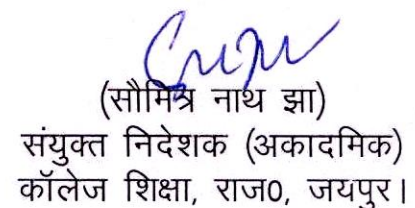 (सौमित्र नाथ झा)
संयुक्त निदेशक (अकादमिक)
कॉलेज शिक्षा, राज0, जयपुर।